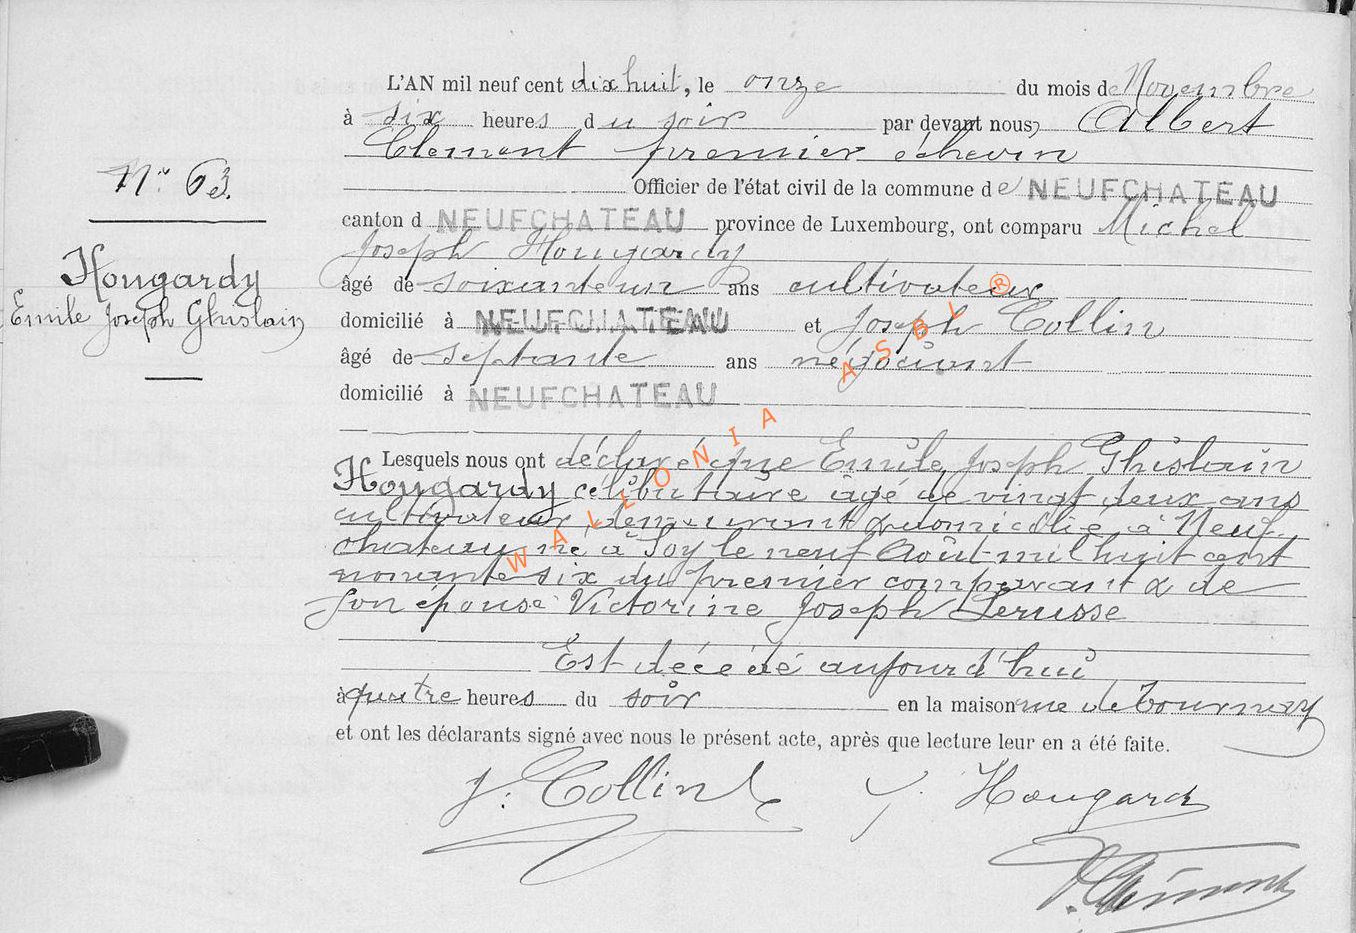 L'AN mil neuf cent dix huit, le onze du mois de Novembre
à six heures du soir par devant nous, Albert
Clement premier échevin
Officier de l'état civil de la commune de NEUFCHATEAU
N° 63.
canton d NEUFCHATEAU province de Luxembourg, ont comparu Michel
Joseph Hougardy
Hougardy
Emile Joseph Ghislain
âgé de soixante un ans cultivateur
domicilié à NEUFCHATEAU et Joseph Collin
âgé de septante ans négociant
domicilié à NEUFCHATEAU
Lesquels nous ont déclaré que Emile Joseph Ghislain
Hougardy célibataire âgé de vingt deux ans
cultivateur, demeurant & domicilié à Neuf-
chateau né à Soy le neuf Août mil huit cent
nonante six du premier comparant & de
son épouse Victorine Joseph Lerusse
Est décédé aujourd'hui
à quatre heures du soir en la maison rue de Tournay
et ont les déclarants signé avec nous le présent acte, après que lecture leur en a été faite.
J. Collin J. Hougardy
A. Clément
WALLONIA ASBL ®